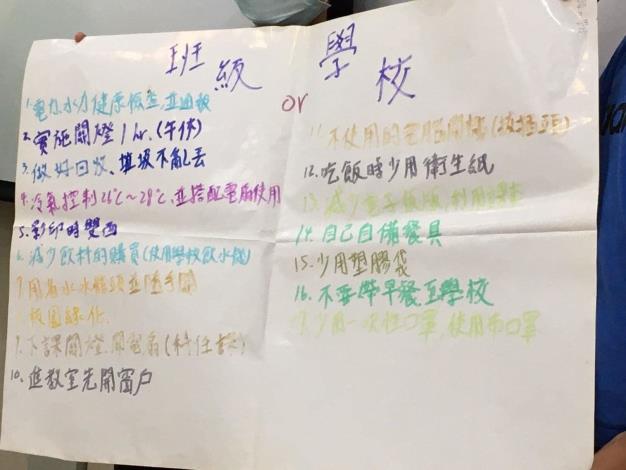 班級 or 學校
1.電力、水力健康檢查,並通報
2.實施關燈1hr.(午休)
3.做好回收、垃圾不亂丟
4.冷氣控制26℃~28℃,並搭配電扇使用
5.影印時雙面
6.減少飲料的購買(使用學校飲水機)
7.用省水水龍頭並隨手關
8.校園綠化
9.下課關燈、關電扇(科任課)
10.進教室先開窗戶
11.不使用的電腦關機(拔插頭)
12.吃飯時少用衛生紙
13.減少電子 利用課本
14.自己自備餐具
15.少用塑膠袋
16.不要帶早餐至學校
17.少用一次性口罩,使用布口罩